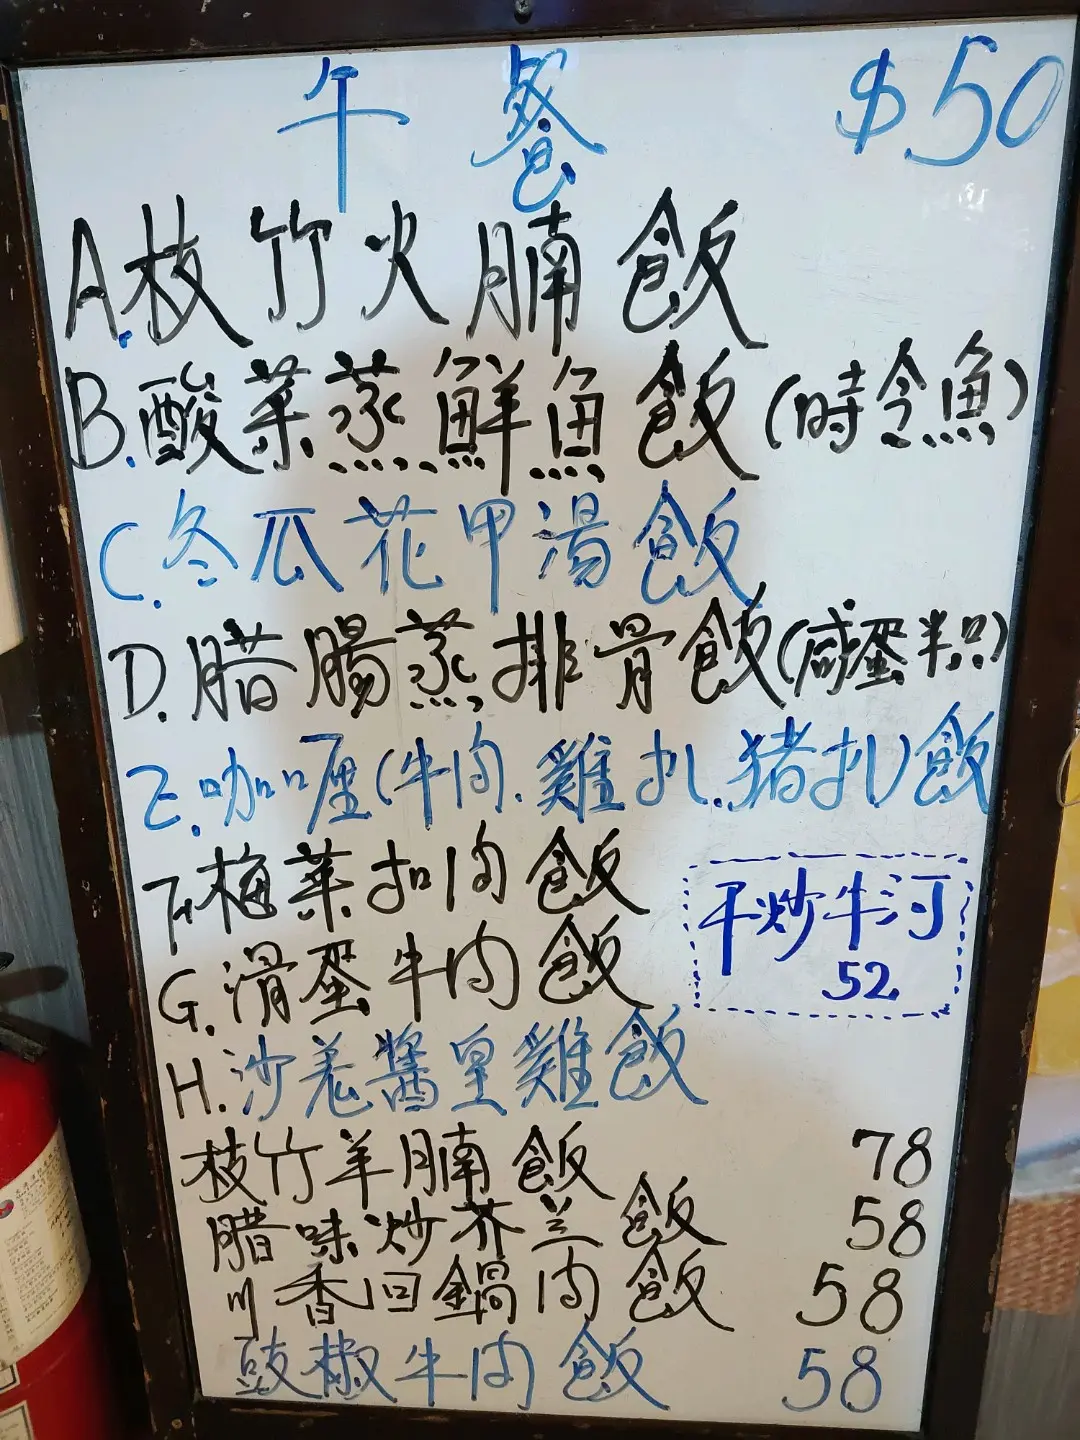 午餐 $50
A.枝竹火腩飯
B.酸菜蒸鮮魚飯(時令魚)
C.冬瓜花甲湯飯
D.腊腸蒸排骨飯(咸蛋半只)
E.咖喱(牛肉.雞扒.豬扒)飯
F.梅菜扣肉飯
干炒牛河
52
G.滑蛋牛肉飯
H.沙姜醬皇雞飯
枝竹羊腩飯 78
腊味炒芥兰飯 58
川香回鍋肉飯 58
豉椒牛肉飯 58